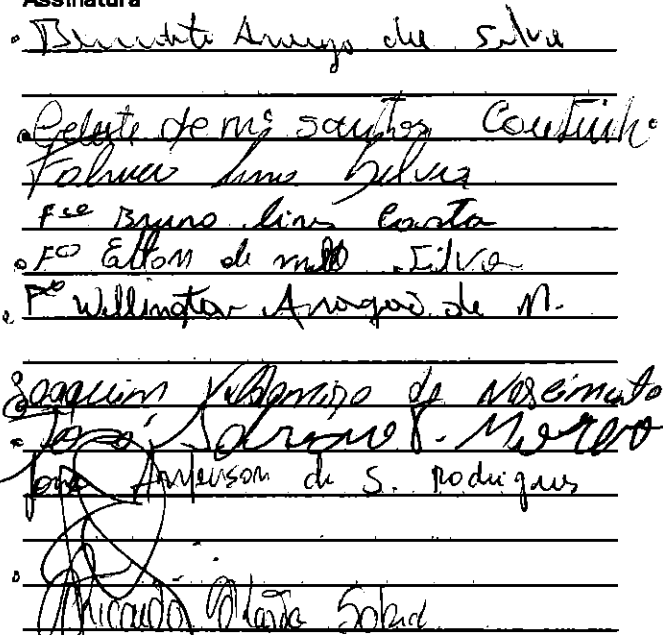 Assinatura
Benedito Araujo da Silva
Celeste de Mª Santos Coutinho
Fabricio Lima Silva
Fco Bruno Lins Costa
Fco Elton de Melo Silva
Fco Wellington Aragão de M.
Joaquim Valdomiro do Nascimento
José
Anderson de S. Rodrigues
Ricardo Sobral